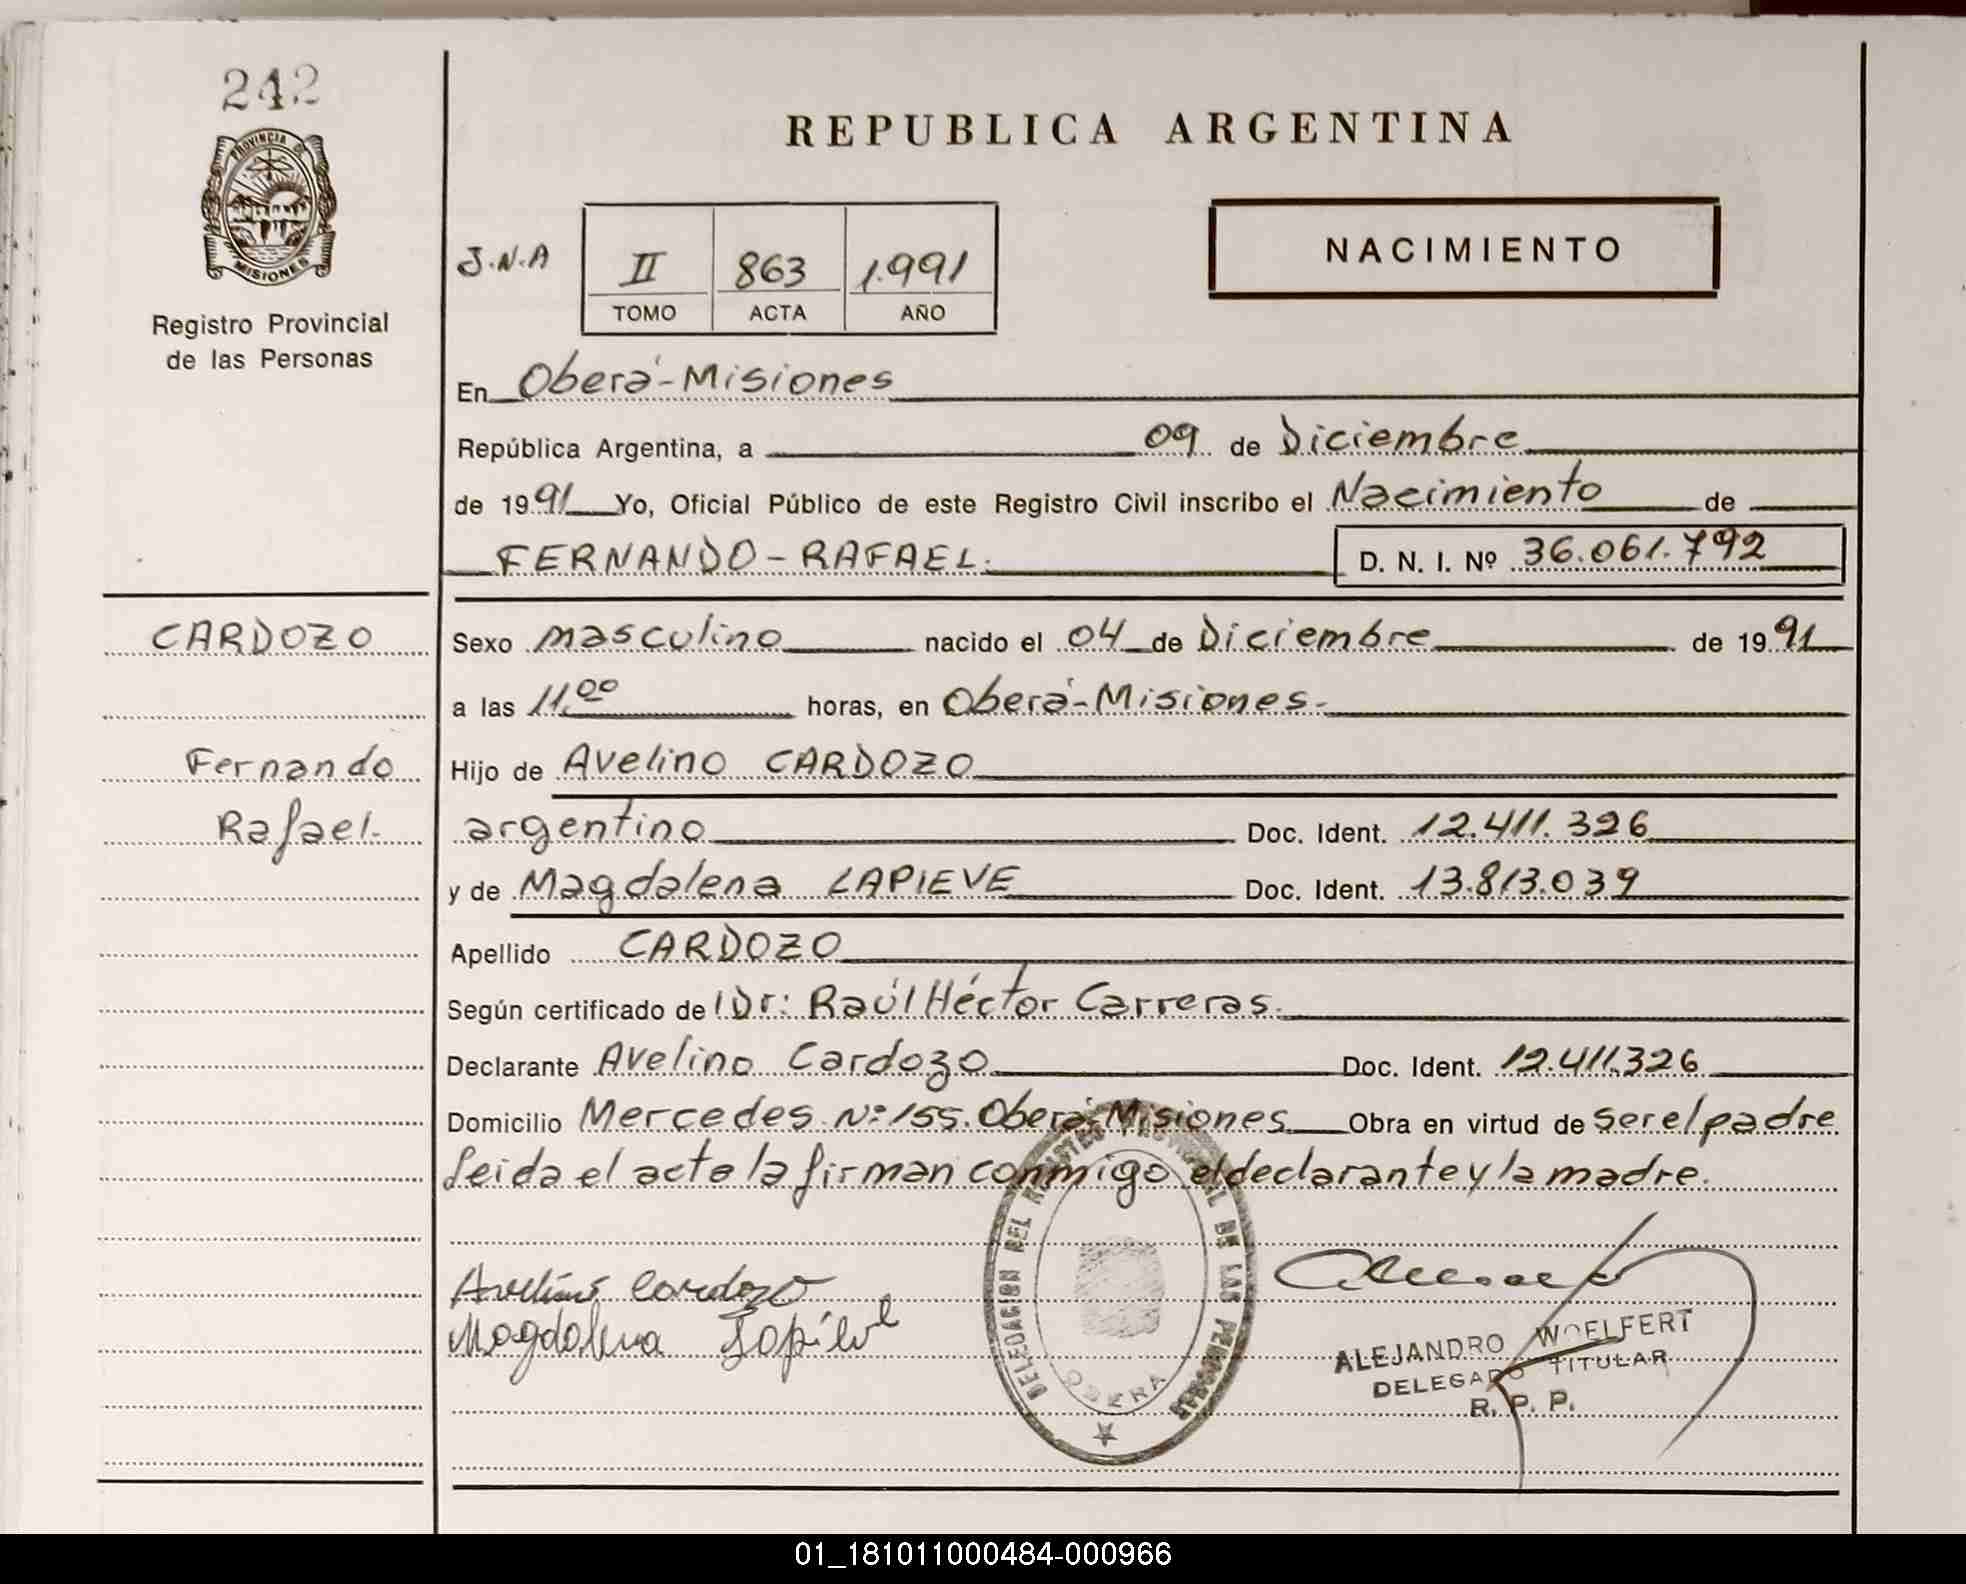 242
PROVINCIA D
MISIONES
Registro Provincial
de las Personas
REPUBLICA ARGENTINA
NACIMIENTO
J.N.A
II 863 1.991
TOMO ACTA AÑO
En Oberá-Misiones
República Argentina, a 09 de Diciembre
de 1991 Yo, Oficial Público de este Registro Civil inscribo el Nacimiento de
FERNANDO-RAFAEL. D. N. I. Nº 36.061.792
CARDOZO
Fernando
Rafael.
Sexo masculino nacido el 04 de Diciembre de 1991
a las 11,00 horas, en Oberá-Misiones.
Hijo de Avelino CARDOZO
argentino Doc. Ident. 12.411.326
y de Magdalena LAPIEVE Doc. Ident. 13.813.039
Apellido CARDOZO
Según certificado de Dr: Raúl Héctor Carreras.
Declarante Avelino Cardozo Doc. Ident. 12.411.326
Domicilio Mercedes Nº 155. Oberá-Misiones Obra en virtud de ser el padre
Leida el acta la firman conmigo el declarante y la madre.
Avelino Cardozo
Magdalena
DELEGACION DEL REGISTRO PROVINCIAL DE LAS PERSONAS
OBERA
ALEJANDRO WOELFERT
DELEGADO TITULAR
R. P. P.
01_181011000484-000966